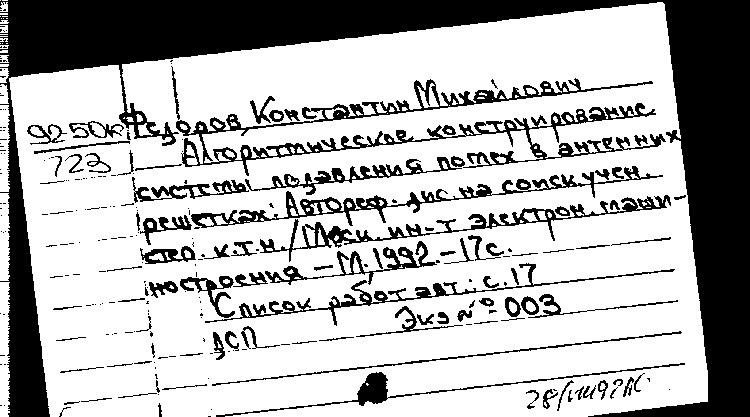 92-50к
723
Федоров, Константин Михайлович
Алгоритмическое конструирование
системы подавления помех в антенных
решетках: Автореф. дис. на соиск. учен.
степ. к.т.н. / Моск. ин-т электрон. маши-
ностроения. – М., 1992. – 17 с.
Список работ авт.: с. 17
ДСП Экз № 003